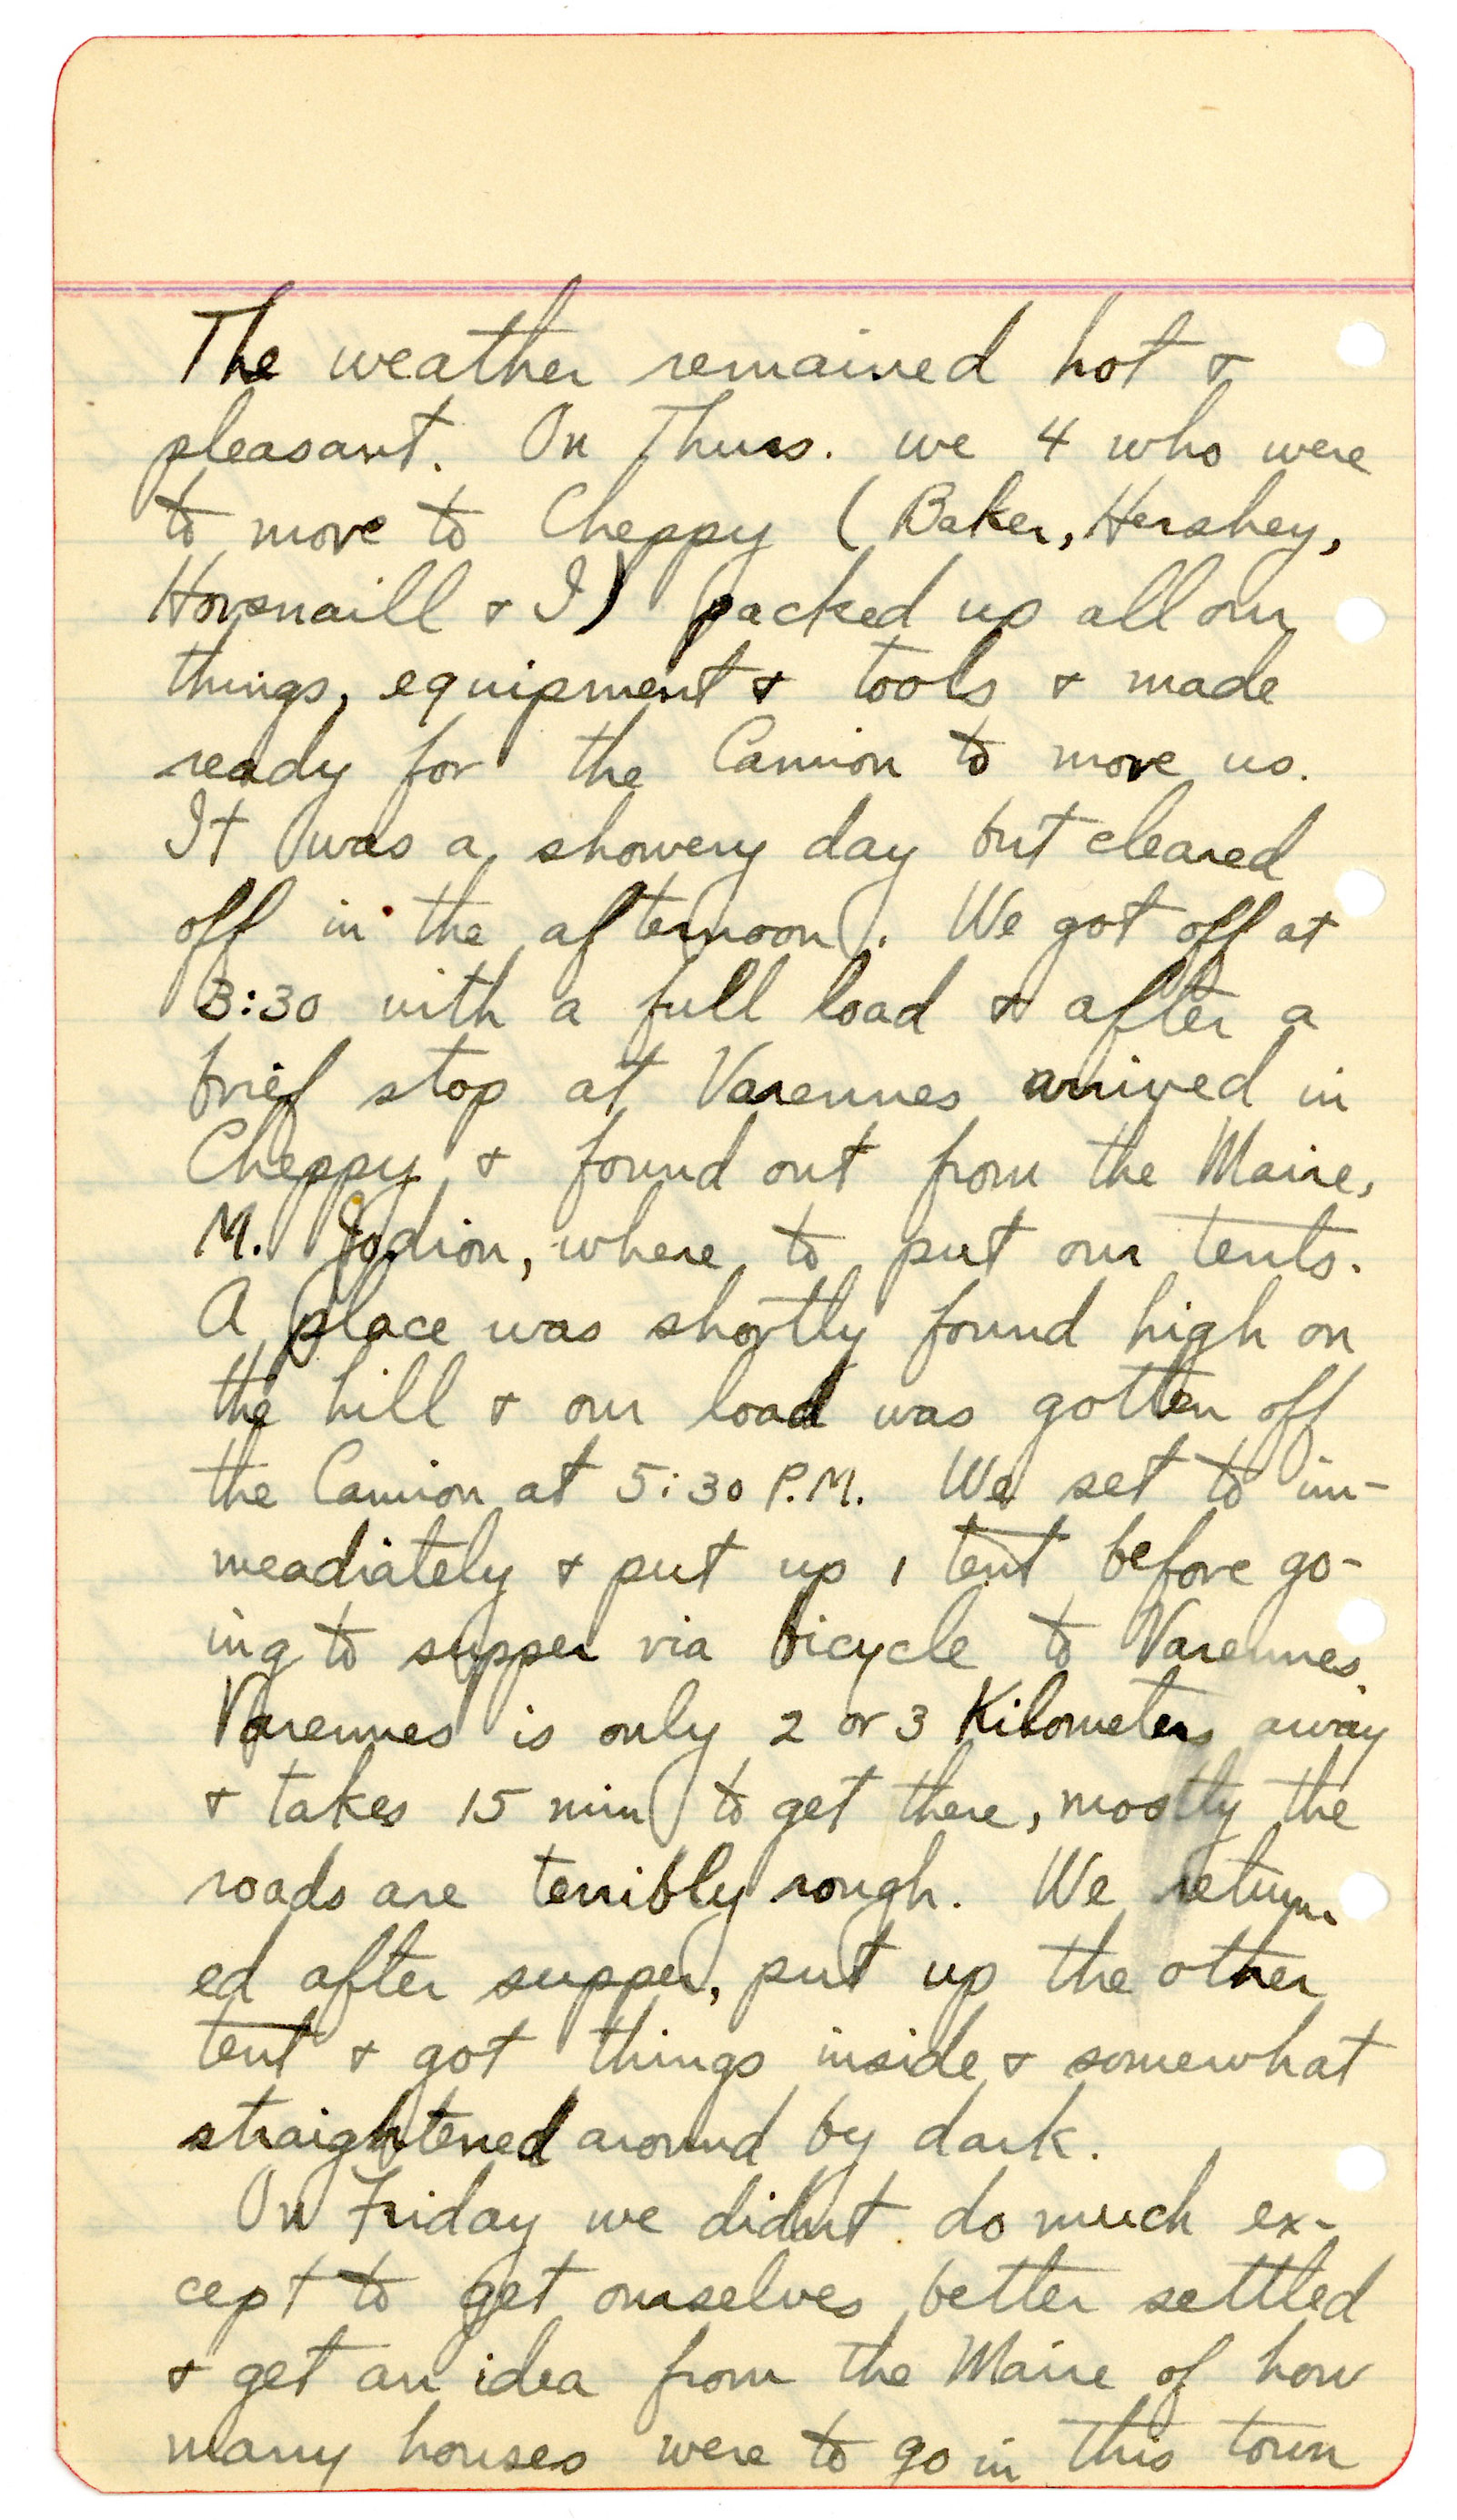 The weather remained hot &
pleasant. On Thurs. we 4 who were
to move to Cheppy (Baker, Hershey,
Horsnaill & I) packed up all our
things, equipment & tools & made
ready for the Camion to move us.
It was a showery day but cleared
off in the afternoon. We got off at
3:30 with a full load & after a
brief stop at Varennes arrived in
Cheppy & found out from the Maire,
M. Jodion, where to put our tents.
A place was shortly found high on
the hill & our load was gotten off
the Camion at 5:30 P.M. We set to im-
meadiately & put up 1 tent before go-
ing to supper via bicycle to Varennes.
Varennes is only 2 or 3 Kilometers away
& takes 15 min to get there, mostly the
roads are terribly rough. We return
ed after supper, put up the other
tent & got things inside & somewhat
straightened around by dark.
On Friday we didnt do much ex-
cept to get ourselves better settled
& get an idea from the Maire of how
many houses were to go in this town